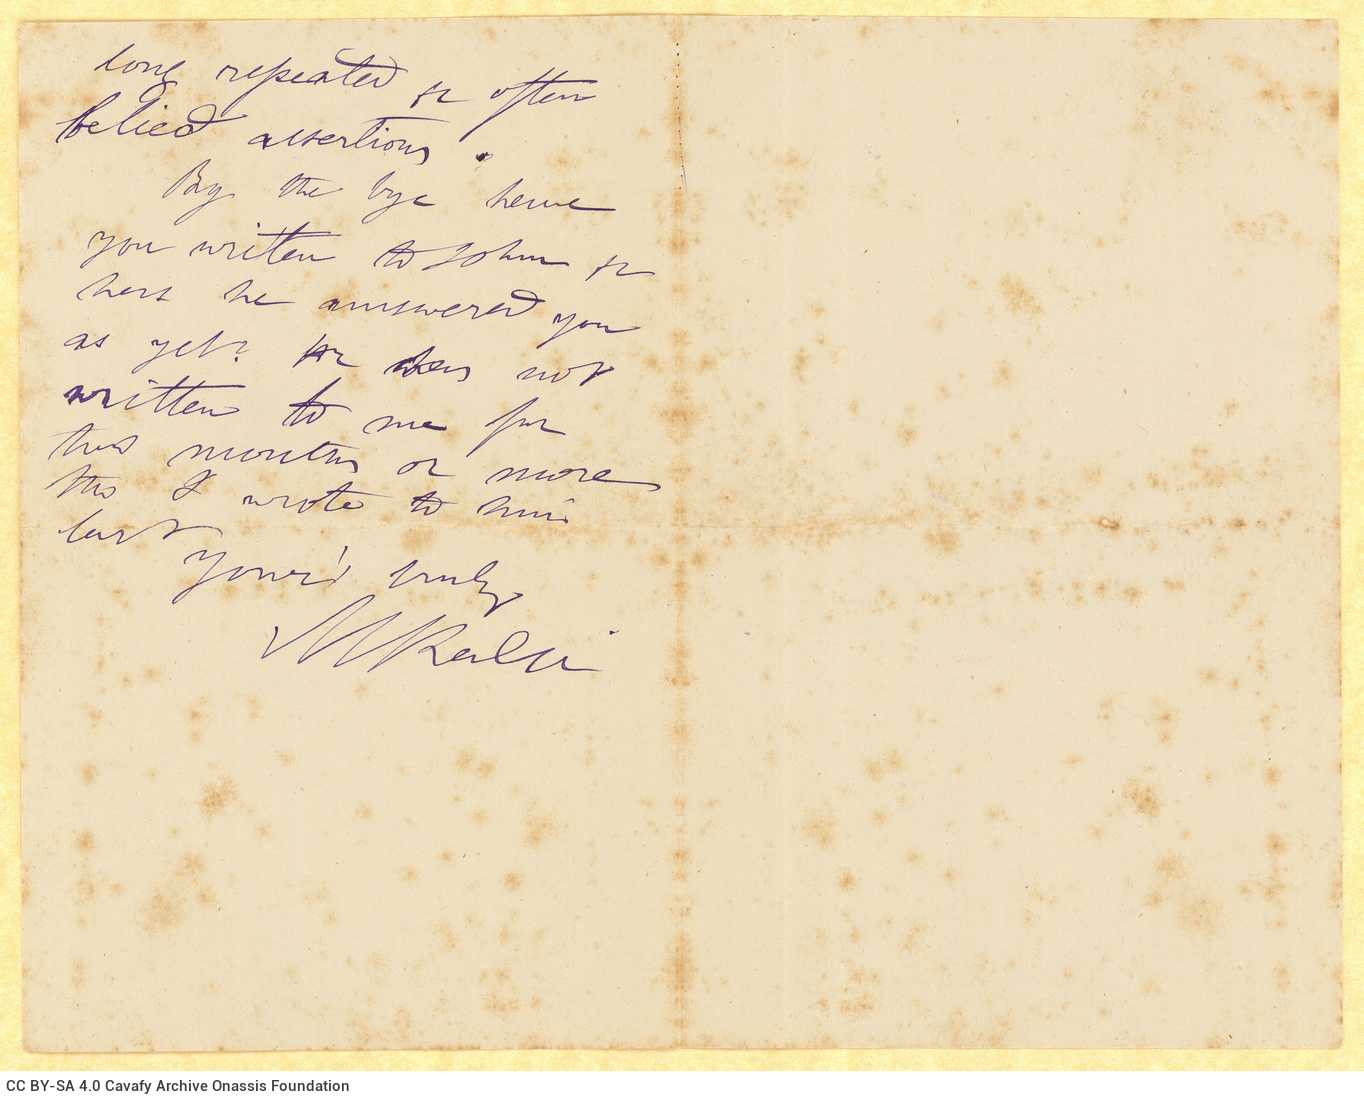 long repeated & often
belied assertions.
By the bye have
you written to John &
has he answered you
as yet? He has not
written to me for
two months or more
tho I wrote to him
last
Your's truly
M Ralli
CC BY-SA 4.0 Cavafy Archive Onassis Foundation